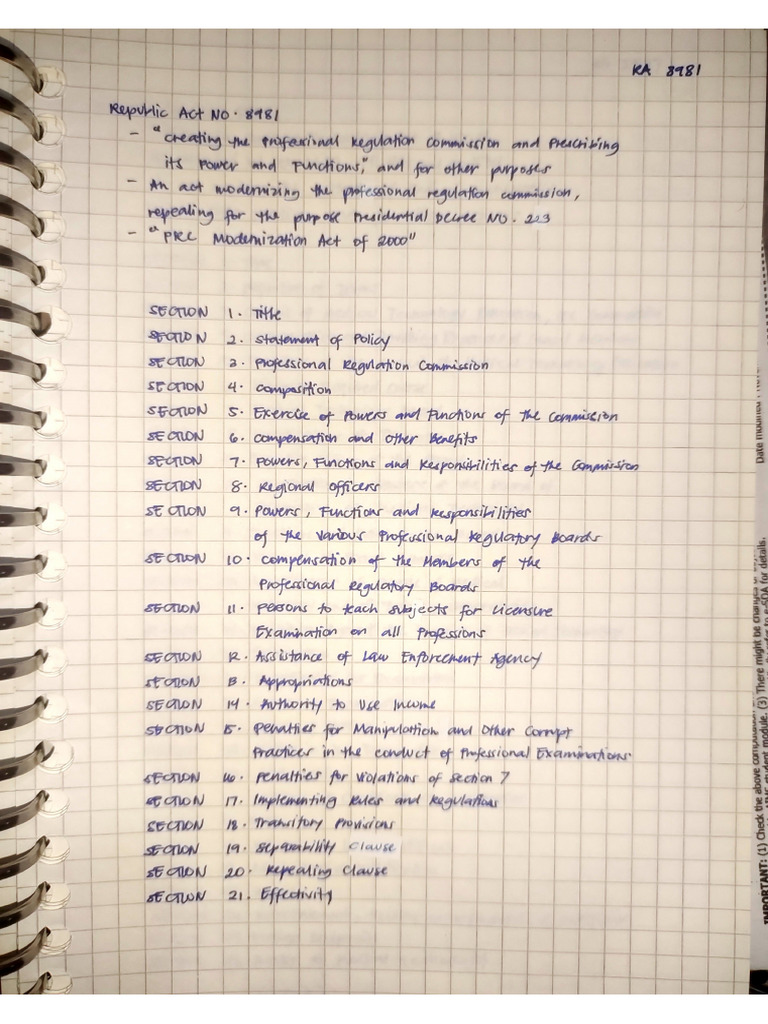 RA 8981
Republic Act No. 8981
- "Creating the Professional Regulation Commission and Prescribing
its Power and Functions," and for other purposes
- An act modernizing the professional regulation commission,
repealing for the purpose Presidential Decree NO. 223
- "PRC Modernization Act of 2000"
SECTION 1. Title
SECTION 2. Statement of Policy
SECTION 3. Professional Regulation Commission
SECTION 4. Composition
SECTION 5. Exercise of Powers and Functions of the Commission
SECTION 6. Compensation and Other Benefits
SECTION 7. Powers, Functions and Responsibilities of the Commission
SECTION 8. Regional Officers
SECTION 9. Powers, Functions and Responsibilities
of the Various Professional Regulatory Boards
SECTION 10. Compensation of the Members of the
Professional Regulatory Boards
SECTION 11. Persons to teach subjects for Licensure
Examination on all Professions
SECTION 12. Assistance of Law Enforcement Agency
SECTION 13. Appropriations
SECTION 14. Authority to Use Income
SECTION 15. Penalties for Manipulation and Other Corrupt
Practices in the conduct of Professional Examinations
SECTION 16. Penalties for Violations of Section 7
SECTION 17. Implementing Rules and Regulations
SECTION 18. Transitory Provisions
SECTION 19. Separability Clause
SECTION 20. Repealing Clause
SECTION 21. Effectivity
IMPORTANT: (1) Check the above
student module. (3) There might be changes
refer to e-SOA for details.
Date modified